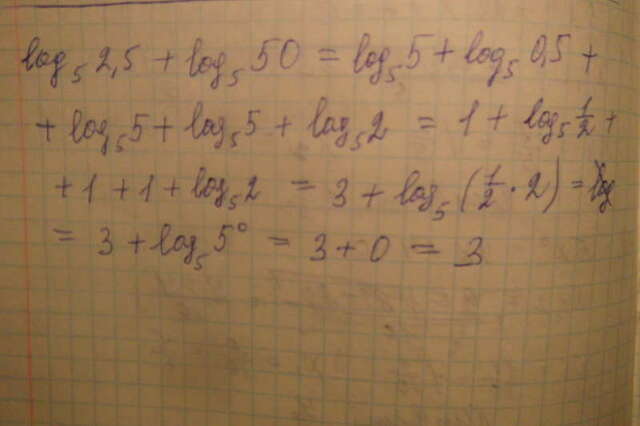 log₅ 2,5 + log₅ 50 = log₅ 5 + log₅ 0,5 +
+ log₅ 5 + log₅ 5 + log₅ 2 = 1 + log₅ 1/2 +
+ 1 + 1 + log₅ 2 = 3 + log₅ (1/2 · 2) =
= 3 + log₅ 5⁰ = 3 + 0 = 3